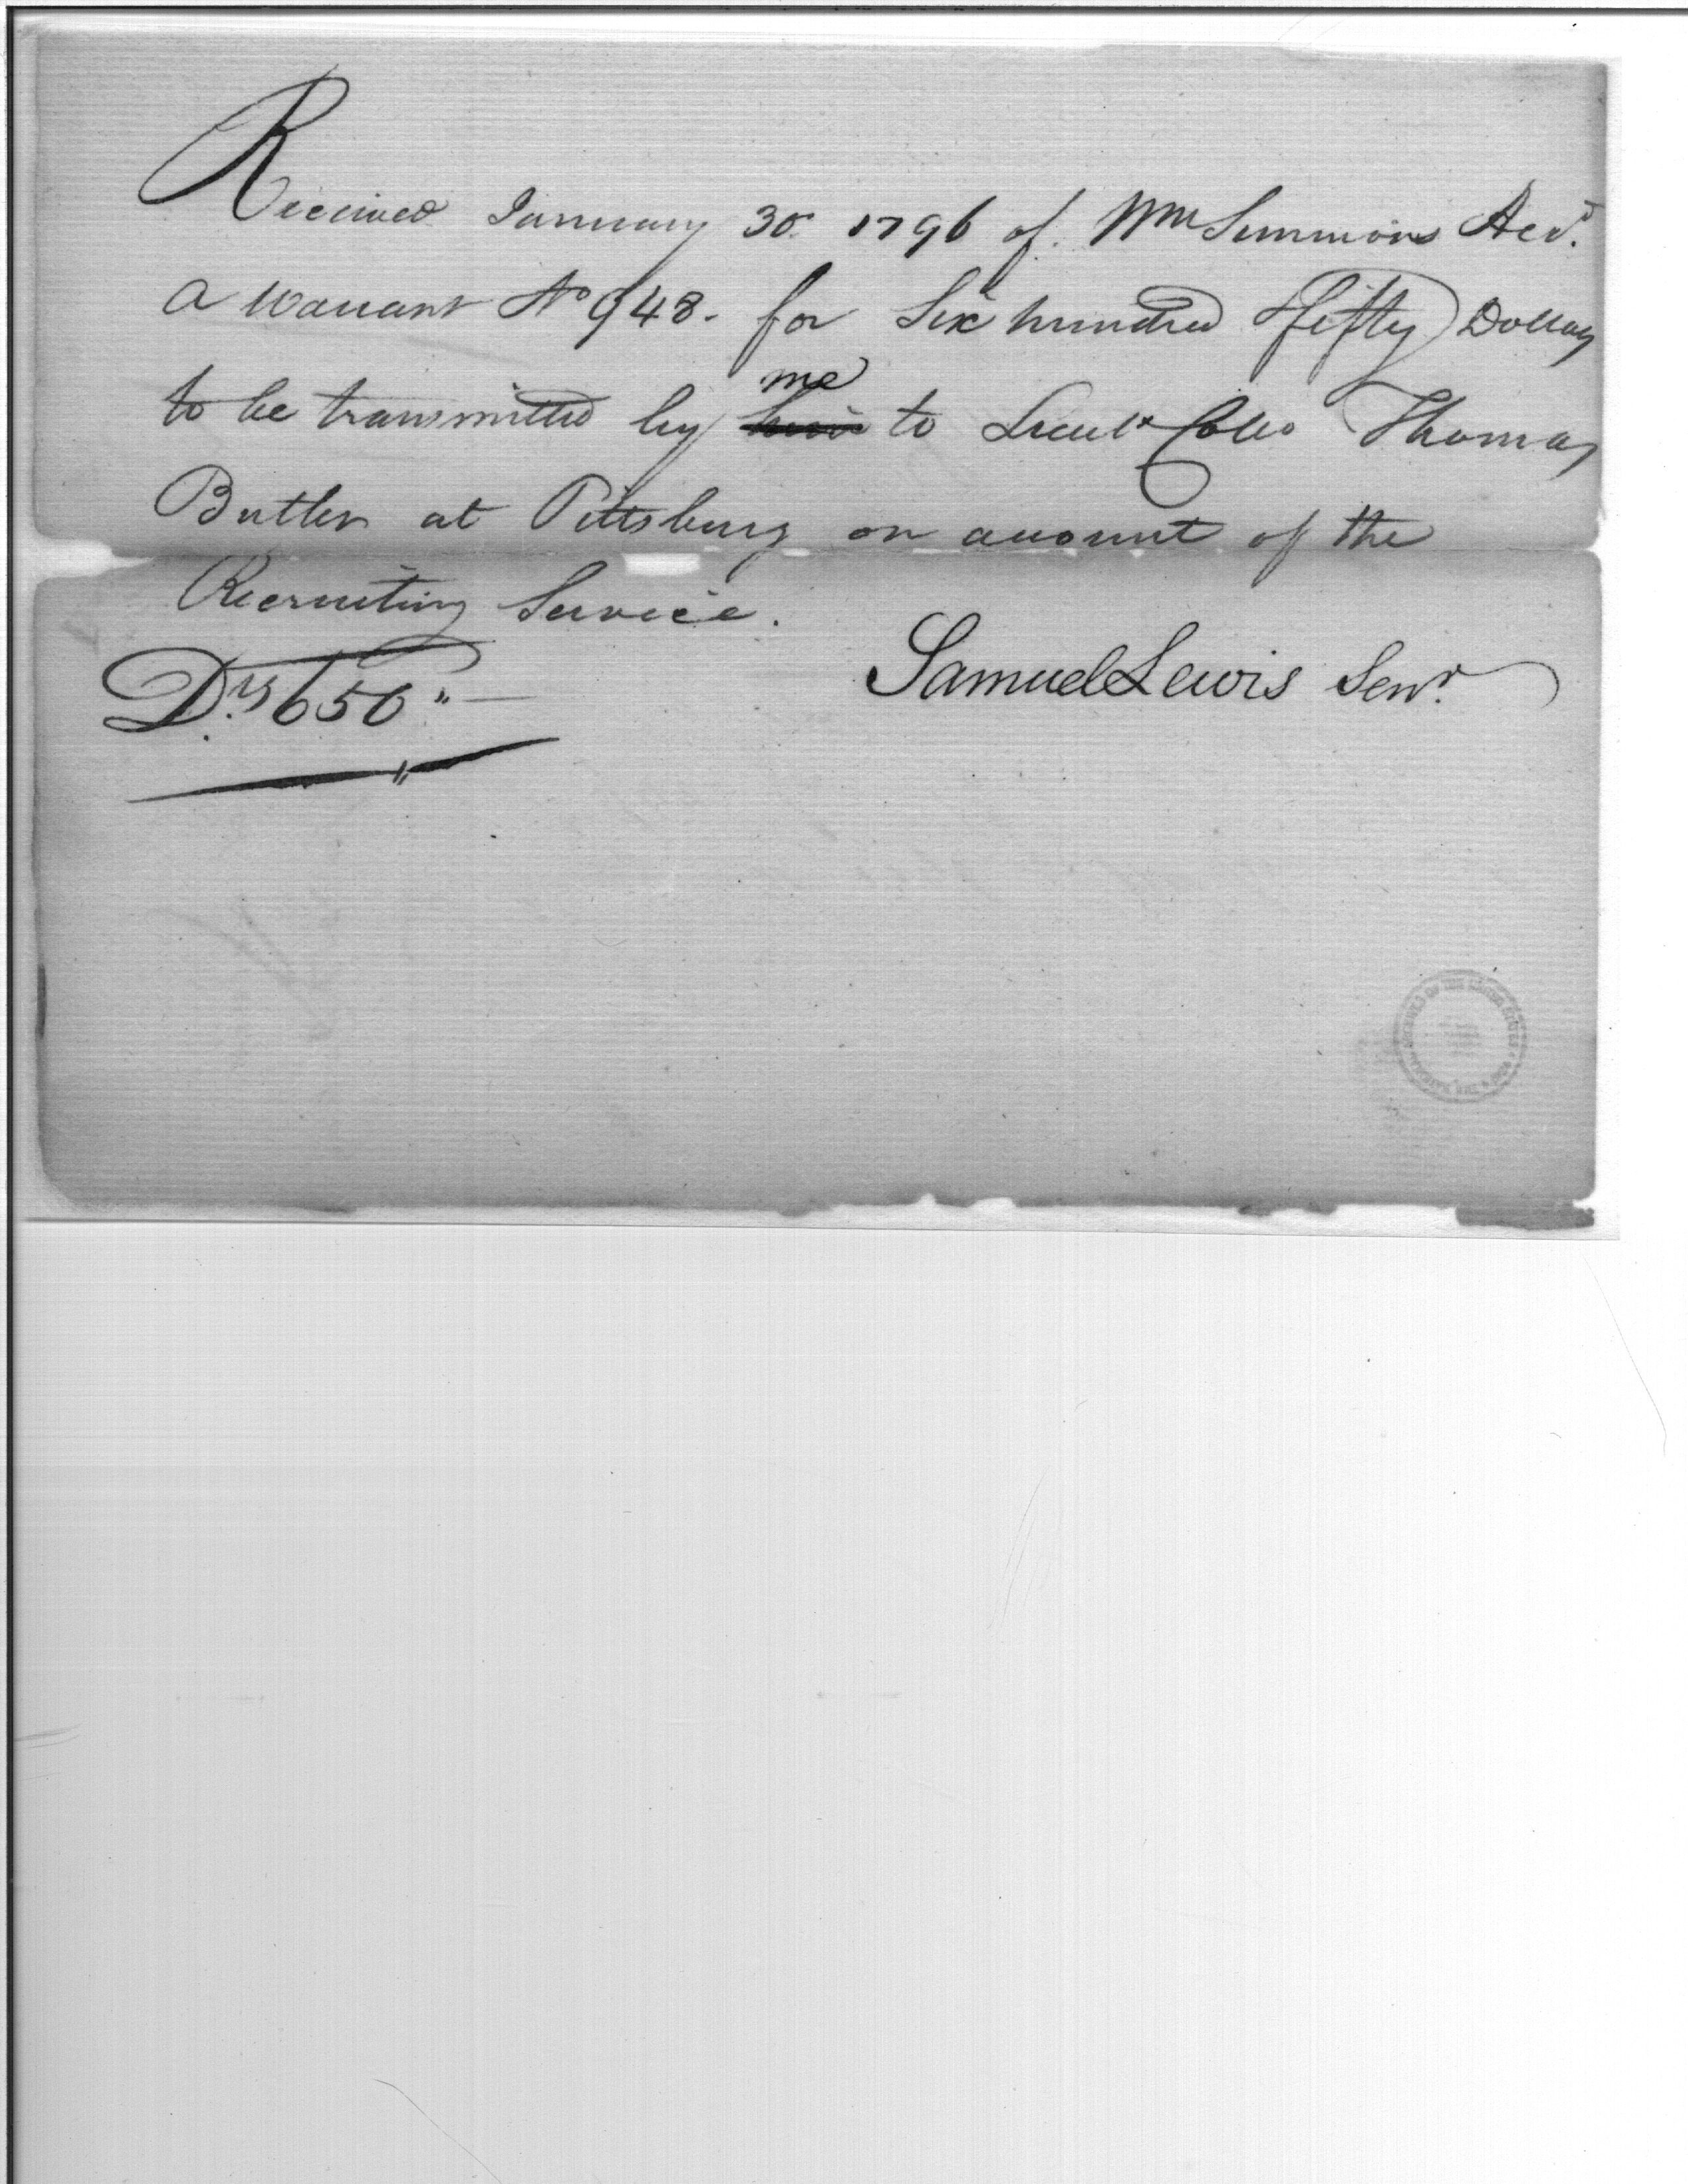 Received January 30. 1796 of Wm Simmons Acct.
a Warrant No 948. for Six hundred & fifty Dollars
me
to be transmitted by him to Lieut Collo Thomas
Butler at Pittsburg on account of the
Recruiting Service.
Drs 650"
Samuel Lewis Senr.